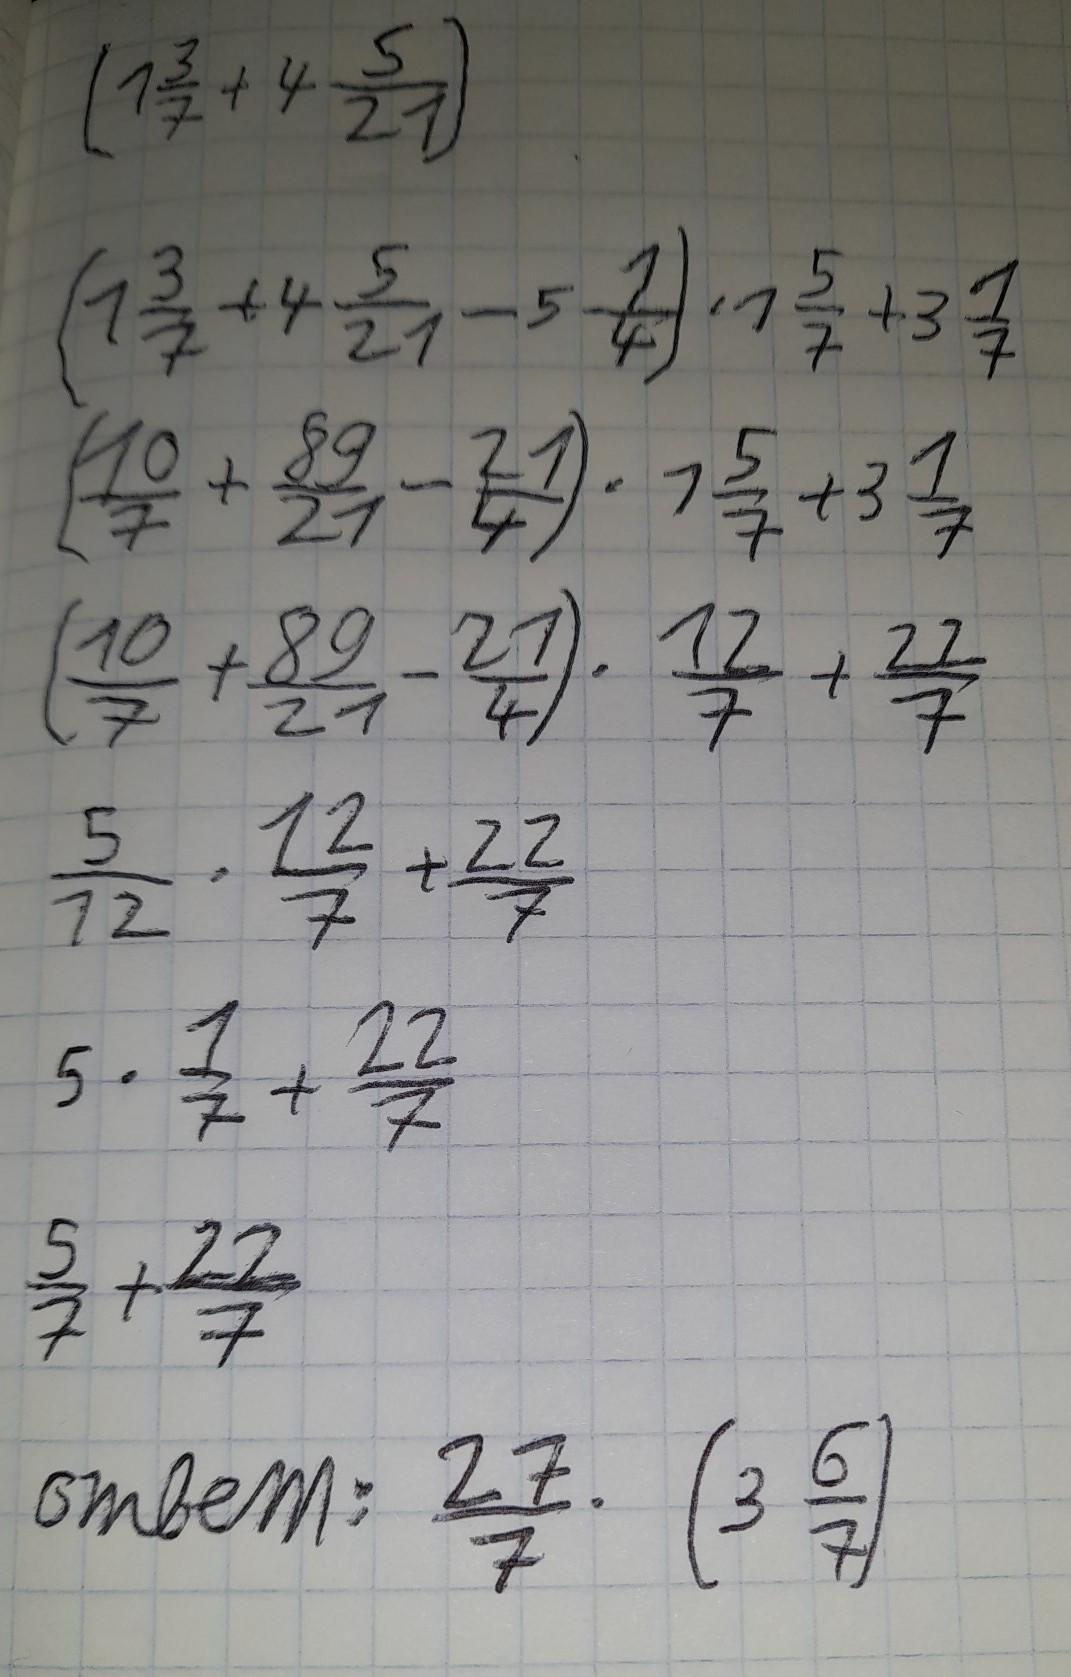 (1 3/7 + 4 5/21)
(1 3/7 + 4 5/21 - 5 1/4) · 1 5/7 + 3 1/7
(10/7 + 89/21 - 21/4) · 1 5/7 + 3 1/7
(10/7 + 89/21 - 21/4) · 12/7 + 22/7
5/12 · 12/7 + 22/7
5 · 1/7 + 22/7
5/7 + 22/7
ответ: 27/7. (3 6/7)